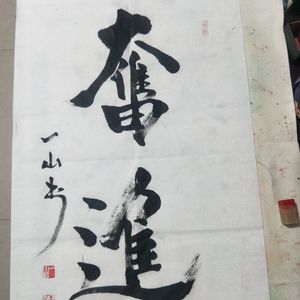 奮進
一山书